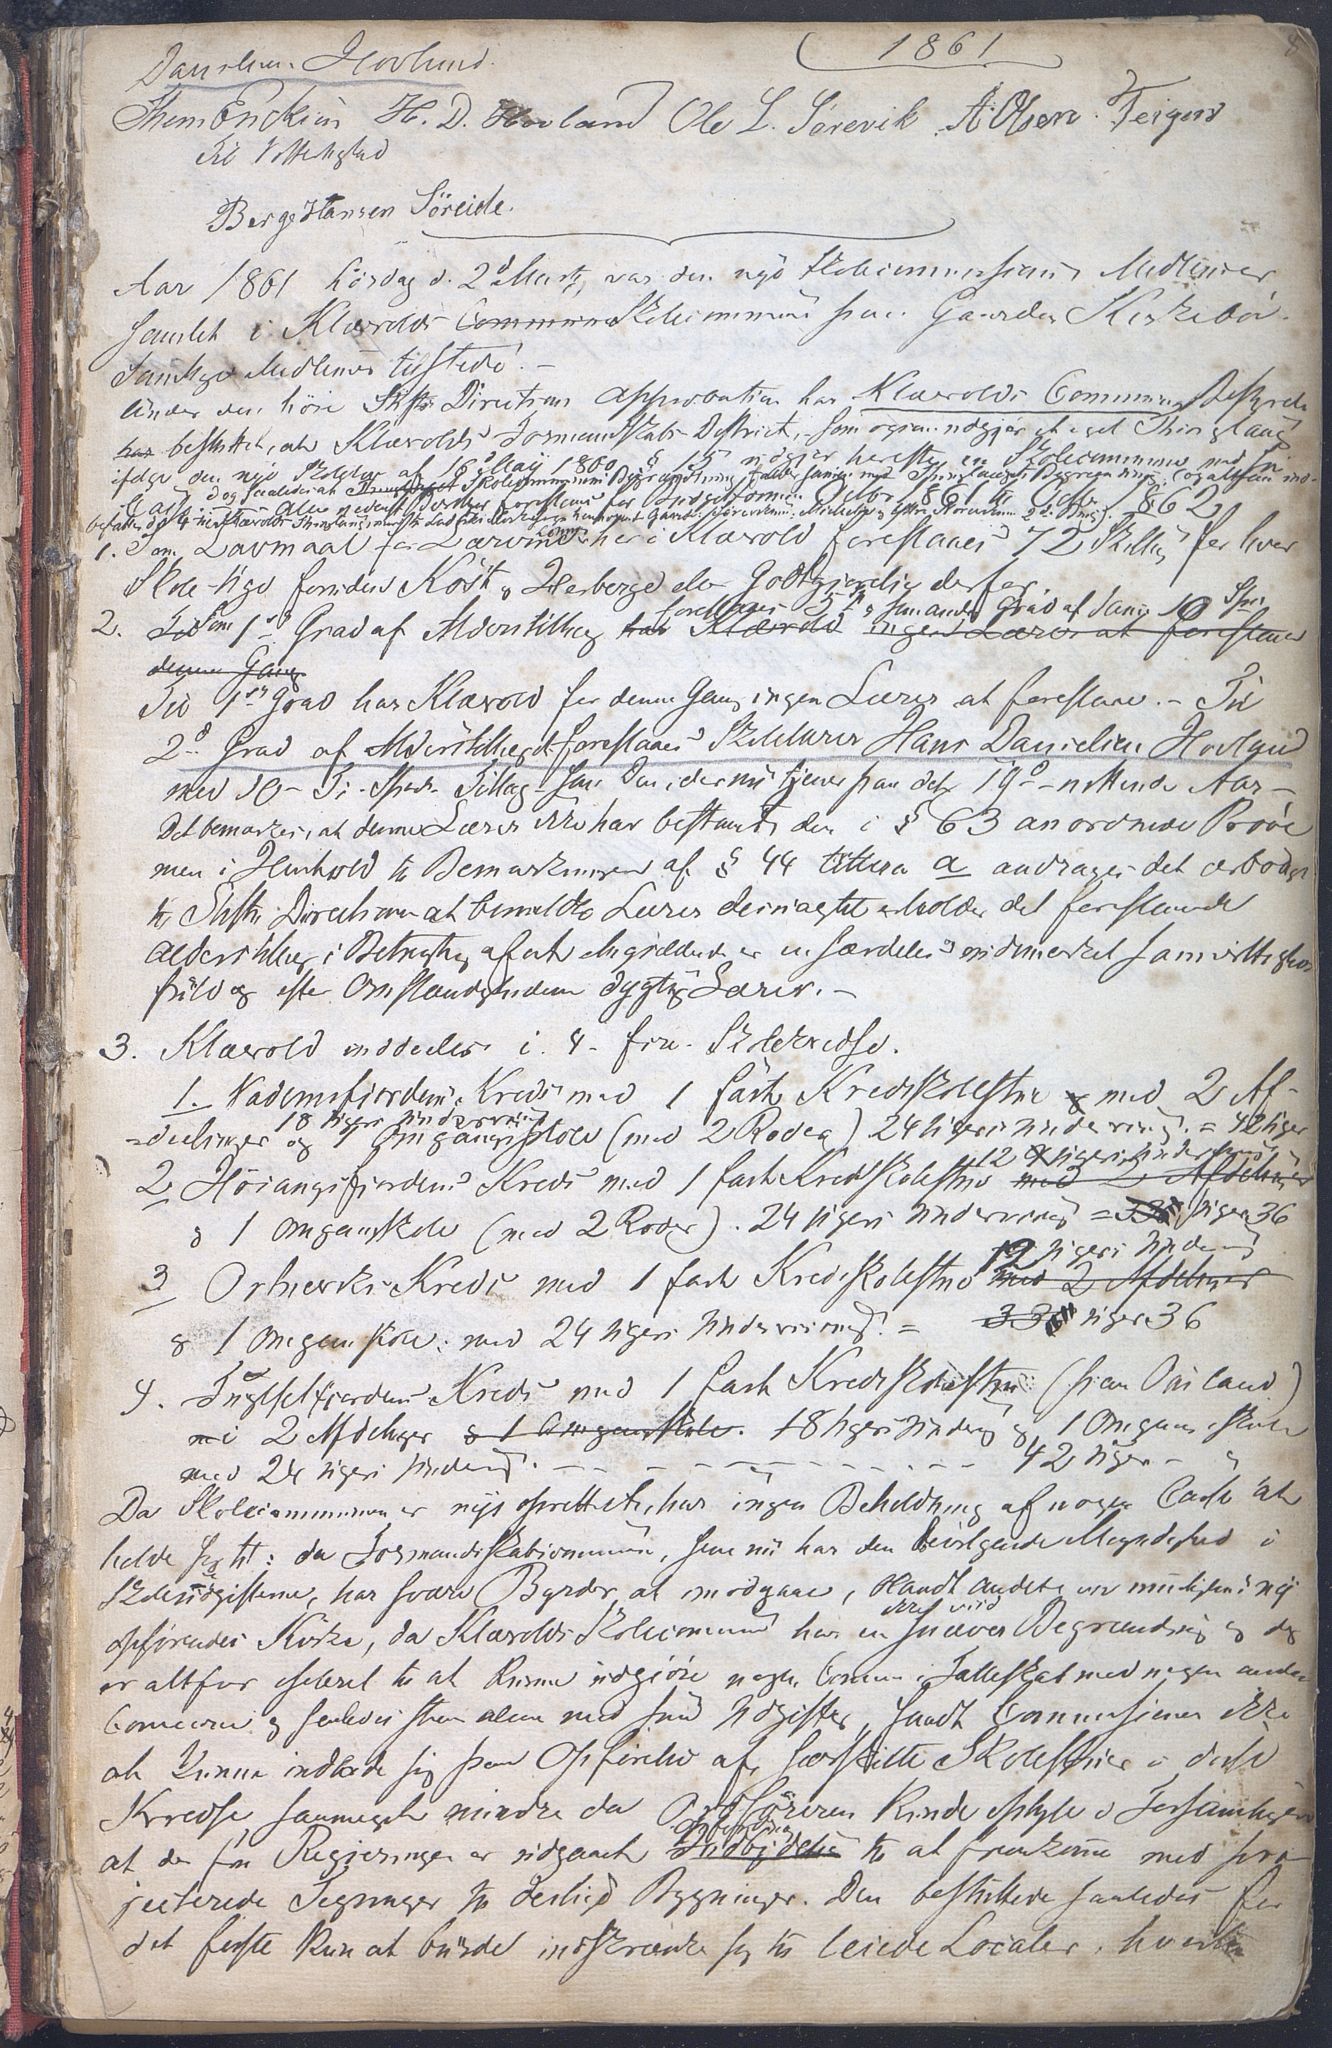 1861
8
Danielsen Hovlund.
H. D. Hovland Ole L. Sørevik A Olsen Teigen
Til
Berge Hansen Söreide.
Aar 1861 Lørdag d. 2d Marts, var den nye Skolecommissions Medlemer
samlet i Klævolds Commune Skolecommune paa Gaarden Kirkebø.
Samtlige Medlemer tilstede. –
Under den höie Stifts Directions Approbation har Klævolds Commune Bestyrelse
har besluttet, at Klævolds Formandskabs District, som ogsaa udgjør et eget Thinglaug
ifølge den nye Skolelov af 16d May 1860 § 15 udgjør herefter en Skolecommune
1861 til 1862
1. Som Lønmaal for Lærerne her i Klævold foreslaaes 72 Skilling for hver
Skole-Uge foruden Kost og Herberge eller Godtgjørelse derfor.
2. Til Som 1ste Grad af Alderstillæg har Klævold ingen Lærer at foreslaae
foreslaaes 5 og som anden Grad af samme 10 Spd
denne Gang
Til 1ste Grad har Klævold for denne Gang ingen Lærer at foreslaae. – Til
2d Grad af Alderstillæget foreslaaes Skolelærer Hans Danielsen Hovlund
med 10 – Ti – Spd. Tillæg som den, der nu tjener paa det 19d – nittende Aar –
Det bemærkes, at denne Lærer ikke har bestaaet den i § 63 anordnede Prøve
men i Henhold til Bemærkningen af § 44 littera a andrages det ærbødigst
til Stifts Directionen at bemeldte Lærer desuagtet erholder det foreslaaede
Alderstillæg i Betragtning af at angjældende er en særdeles udmerket samvittigheds-
fuld og efter Omstændighederne dygtig Lærer. –
3. Klævold inddeles i 4 – fire Skolekredse.
1. Vademsfjordens Kreds med 1 fast Kredsskolestue og med 2 Af-
delinger 18 Ugers Underviisning og 1 Omgangsskole (med 2 Roder) 24 Ugers Underviisng. = 42 Uger
2 Høiangsfjordens Kreds med 1 fast Kredsskolestue med 2 Afdelinger
12 Ugers Underviisng
og 1 Omgangsskole (med 2 Roder). 24 Ugers Underviisng = Uger 36
3 Ortnevks Kreds med 1 fast Kredsskolestue med 2 Afdelinger
12 Ugers Underviisng
og 1 Omgangsskole: med 24 Ugers Underviisning. = Uger 36
4. Fuglsetfjordens Kreds med 1 fast Kredsskolestue (paa Østland)
i 2 Afdelinger og 1 Omgangsskole. 18 Ugers Undervg og 1 Omgangsskole
med 24 Ugers Undervg. – – – – – – – – 42 Uger – "
Da Skolecommunen er nys oprettet, har ingen Beholdning af nogen Casse at
holde sig til: da Formandskabscommunen, som nu har den bevilgende Myndighed i
Skoleudgifterne, har svære Byrder at imødegaae, blandt andet ved muligens nye
opførendes Kirke, da Klævolds Skolecommune har en snæver Begrændsning og dog
er altfor adskilt til at kunne udgjøre nogen Commune i Fælleskab med nogen anden
Commune og saaledes staar alene med sine Udgifter, fandt Commissionen ikke
at kunne indlade sig paa Opførelse af særskilte Skolestuer i disse
Kredse, saameget mindre da Ordføreren kunde oplyse i Forsamlingen
at der fra Regjeringen er udgaaet Indbydelse til at fremkomme med pro-
jecterede Tegninger til deslige Bygninger. Den besluttede saaledes for
det første kun at burde indskrænke sig til leiede Localer, hvortil